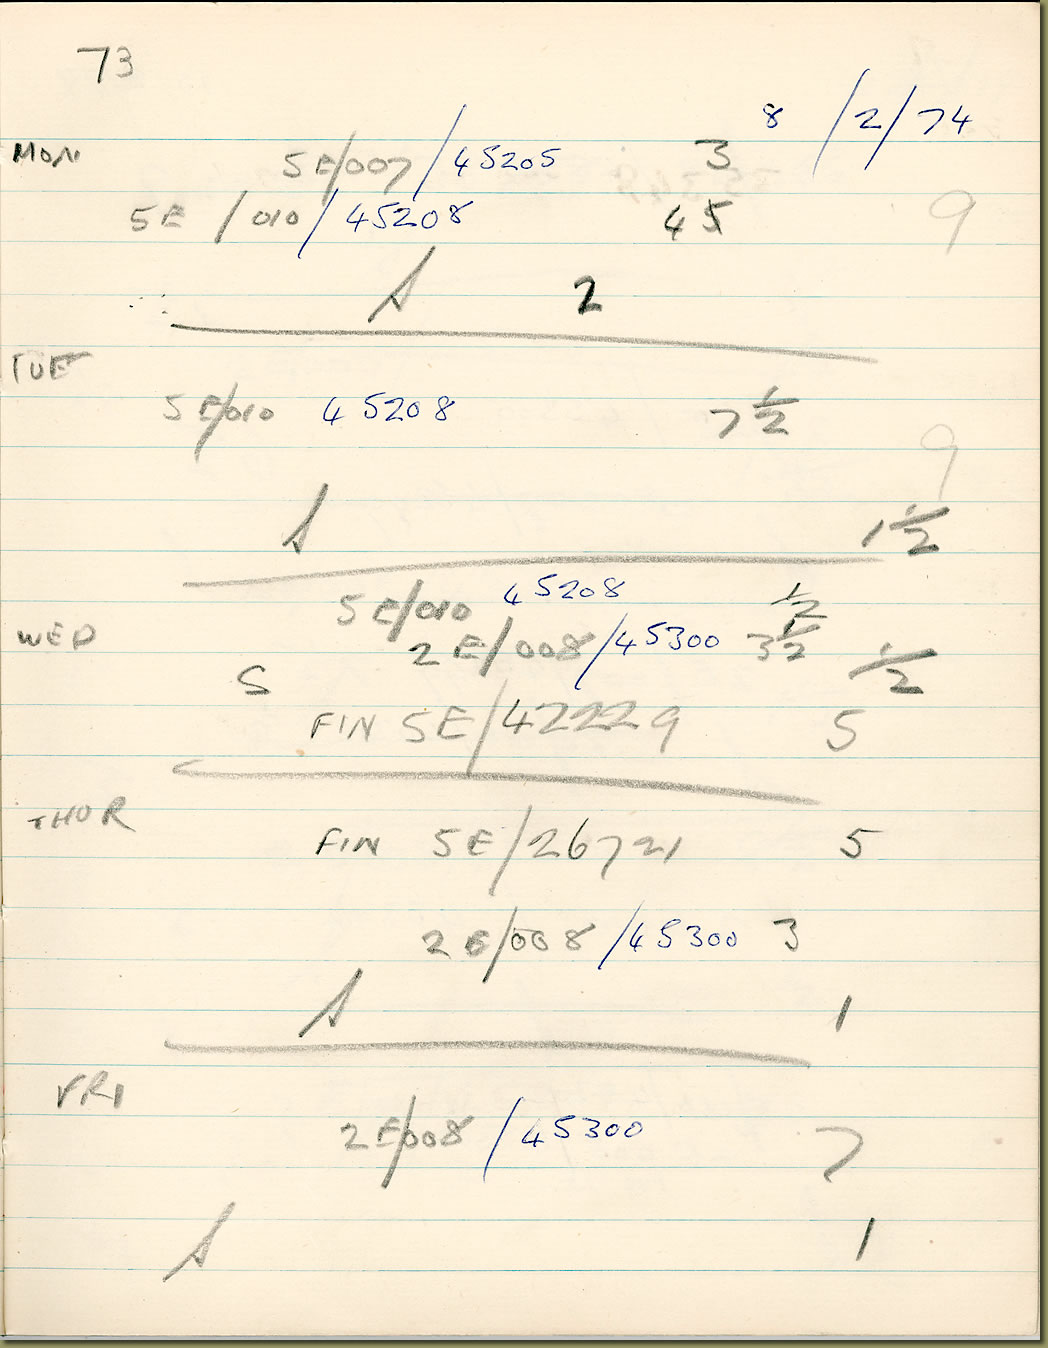 73
8 /2/74
MON 5E/007/45205 3
5E /010/45208 45 9
S 2
TUE
5E/010 45208 7 1/2
9
S 1 1/2
5E/010 45208 1/2
WED 2E/008/45300 3 1/2
S 1/2
FIN 5E/42229 5
THUR
FIN 5E/26721 5
2E/008/45300 3
S 1
FRI
2E/008/45300 7
S 1